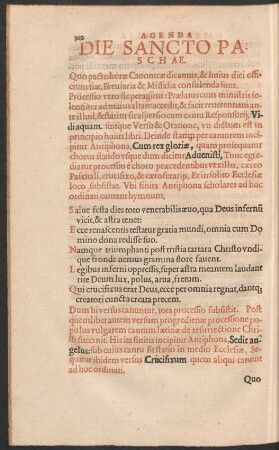 302
AGENDA
DIE SANCTO PA-
SCHAE.
Quo pacto horæ Canonicæ dicantur, & huius diei offi-
cium fiat, Breuiaria & Missalia consulenda sunt.
Processio vero sic peragitur: Prælatus cum ministris so-
lenniter ad maius altare accedit, & facit reuerentiam an-
te illud, & statim fit aspersio cum cantu Responsorij, Vi-
di aquam. suisque Versu & Oratione, vt dictum est in
principio huius libri. Deinde statim per cantorem inci-
pitur Antiphona, Cum rex gloriæ, quam prosequatur
chorus stando vsque dum dicitur Aduenisti, Tunc egre-
ditur processio è choro præcedentibus vexillis, cereo
Paschali, crucifixo, & cæteris rarijs. Et in solito Ecclesiæ
loco, subsistat. Vbi finita Antiphona scholares ad hoc
ordinati cantant hymnum,
Salue festa dies toto venerabilis æuo, qua Deus infernū
vicit, & astra tenet:
Ecce renascentis testatur gratia mundi, omnia cum Do
mino dona redisse suo.
Namque triumphanti post tristia tartara Christo vndi-
que fronde nemus gramina flore fauent.
Legibus inferni oppressis, super astra meantem laudant
rite Deum lux, polus, arua, fretum.
Qui crucifixus erat Deus, ecce per omnia regnat, dantq;
creatori cuncta creata precem.
Dum hi versus canuntur, tota processio subsistit. Post
quemlibet autem versum progrediente processione po
pulus vulgarem cantum lætitiæ de resurrectione Chri-
sti succinit. His ita finitis incipitur Antiphona, Sedit an-
gelus: sub cuius cantu fit statio in medio Ecclesiæ, Se-
quitur ibidem versus Crucifixum quem aliqui canunt
ad hoc ordinati.
Quo